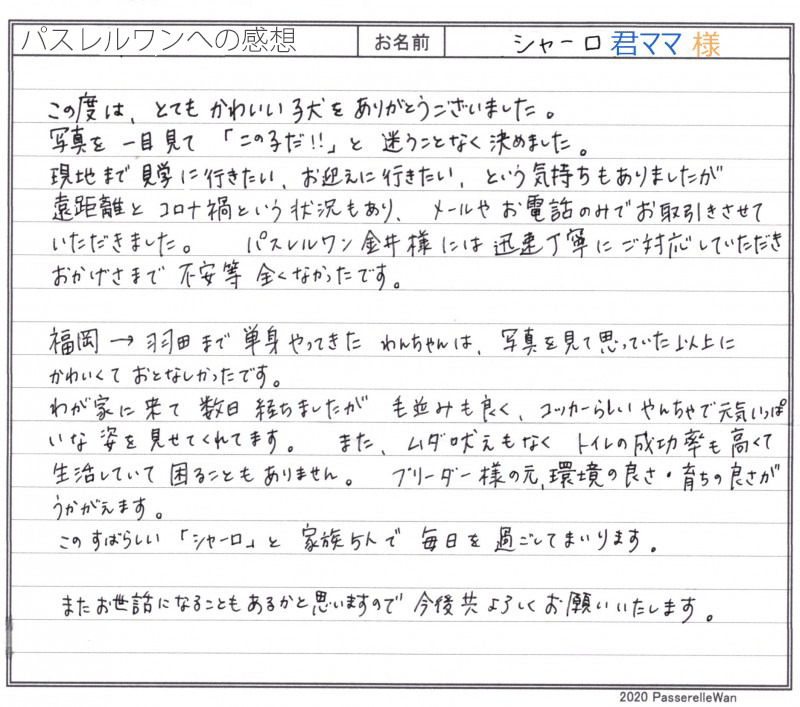 パスレルワンへの感想 お名前 シャーロ 君ママ 様
この度は、とてもかわいい子犬をありがとうございました。
写真を一目見て「この子だ!!」と迷うことなく決めました。
現地まで見学に行きたい、お迎えに行きたい、という気持ちもありましたが
遠距離とコロナ禍という状況もあり、メールやお電話のみでお取引きさせて
いただきました。 パスレルワン金井様には迅速丁寧にご対応していただき
おかげさまで不安等全くなかったです。
福岡→羽田まで単身やってきたわんちゃんは、写真を見て思っていた以上に
かわいくておとなしかったです。
わが家に来て数日経ちましたが毛並みも良く、コッカーらしいやんちゃで元気いっぱ
いな姿を見せてくれてます。 また、ムダ吠えもなくトイレの成功率も高くて
生活していて困ることもありません。 ブリーダー様の元、環境の良さ・育ちの良さが
うかがえます。
このすばらしい「シャーロ」と家族5人で毎日を過ごしてまいります。
またお世話になることもあるかと思いますので今後共よろしくお願いいたします。
2020 PasserelleWan